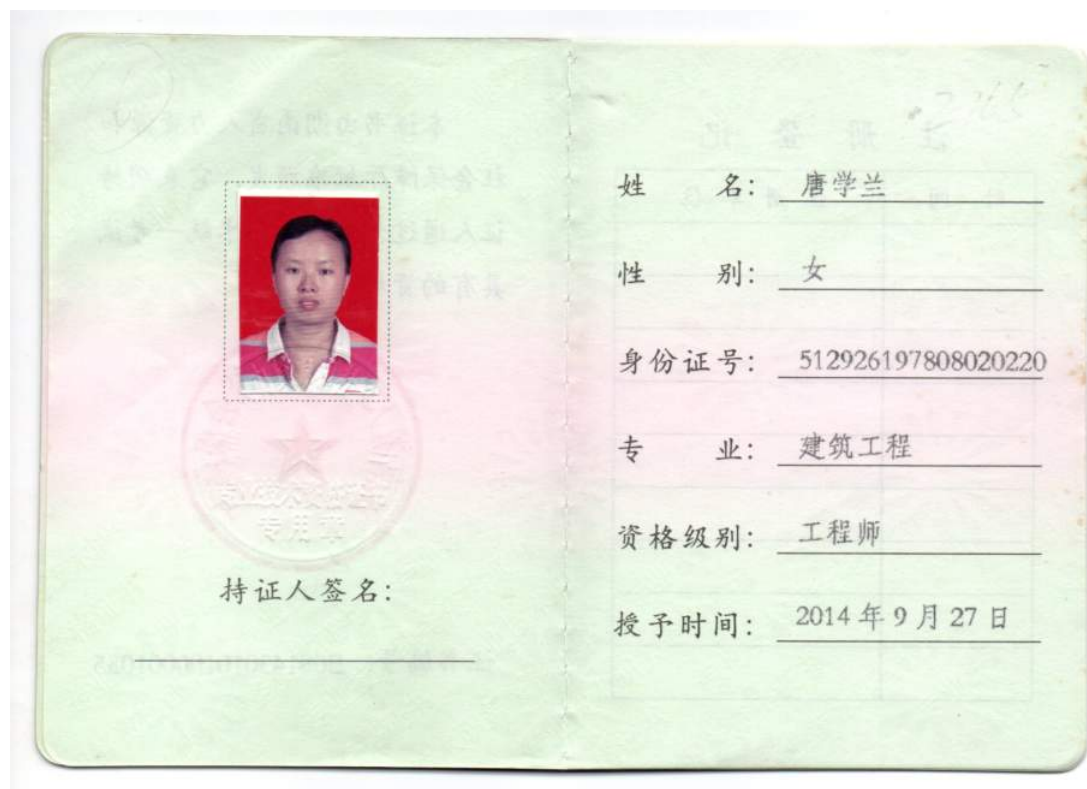 专用章
持证人签名：
姓 名： 唐学兰
性 别： 女
身份证号： 512926197808020220
专 业： 建筑工程
资格级别： 工程师
授予时间： 2014 年 9 月 27 日